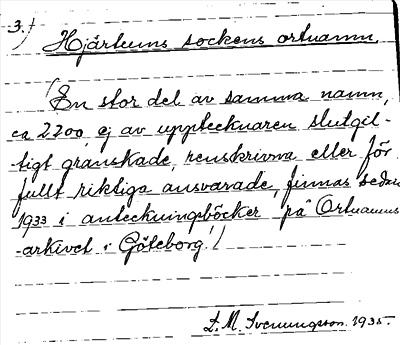 3.)
Hjärtums sockens ortnamn
(En stor del av samma namn,
ca 2200, ej av upptecknaren slutgil-
tigt granskade, renskrivna eller för
fullt riktiga ansvarade, finnas sedan
1933 i anteckningsböcker på Ortnamns-
arkivet i Göteborg!)
L. M. Svenungsson. 1935.